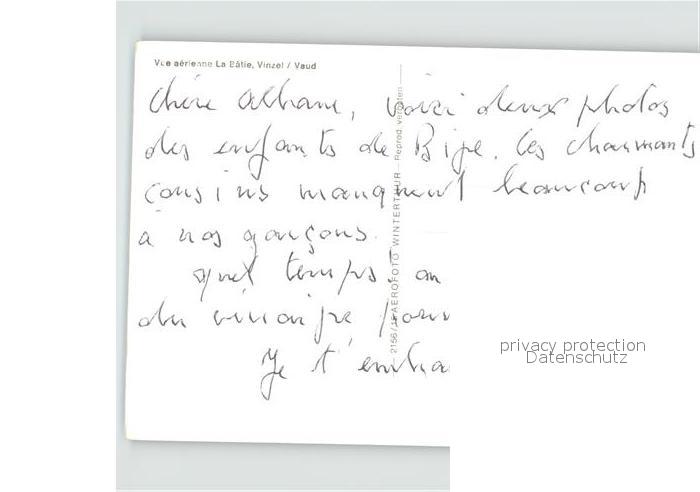 Vue aérienne La Bâtie, Vinzel / Vaud
Chère, voici deux photos
des enfants de Bige. Ces charmants
cousins manquent beaucoup
à nos garçons.
quel temps! on
du pour
Je t'embra
2156/ AEROFOTO WINTERTHUR - Reprod. verboten
privacy protection
Datenschutz